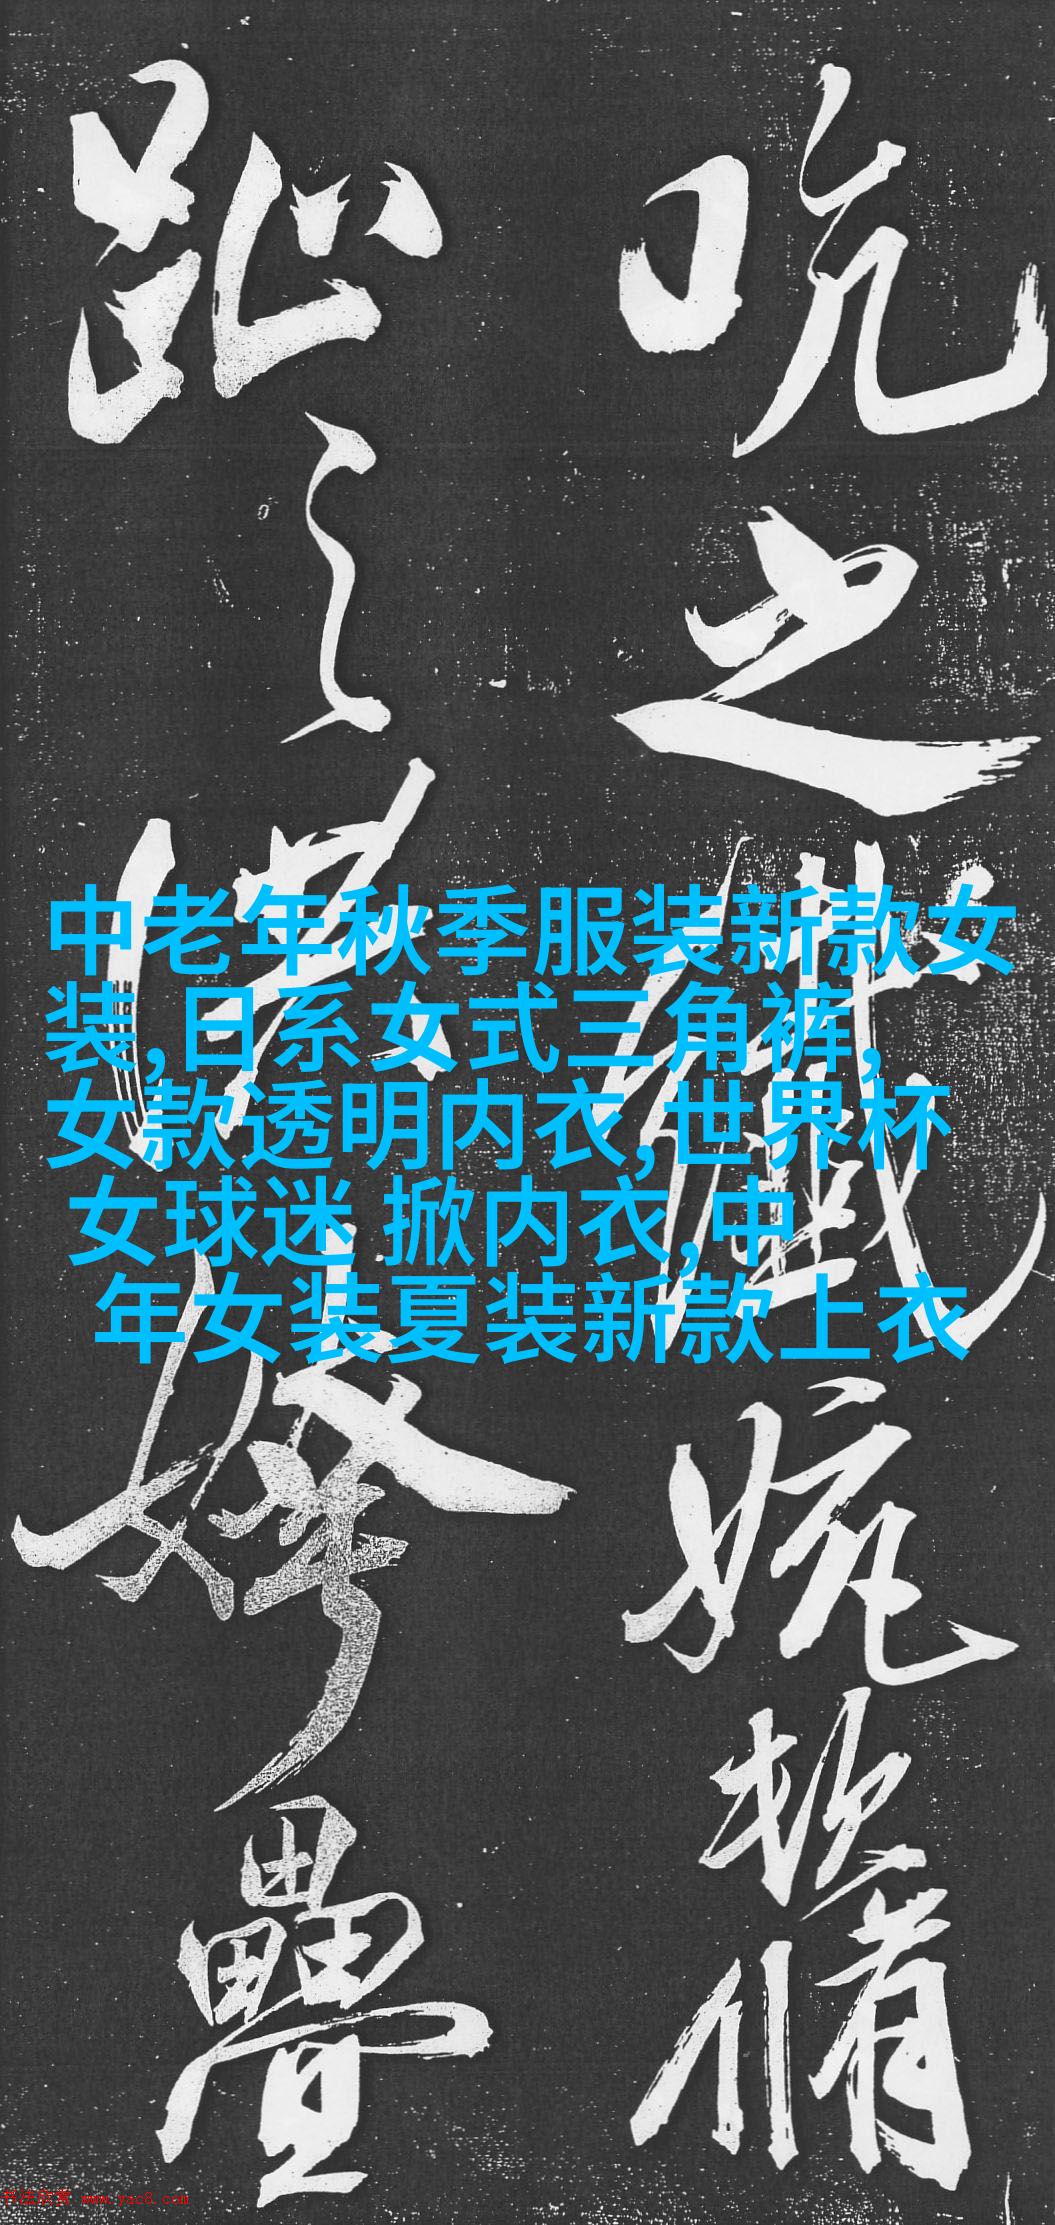 吮之
婉
软
趾之
叠
中老年秋季服装新款女
装,日系女式三角裤,
女款透明内衣,世界杯
女球迷 掀内衣,中
年女装夏装新款上衣
书法欣赏 www.yac8.com